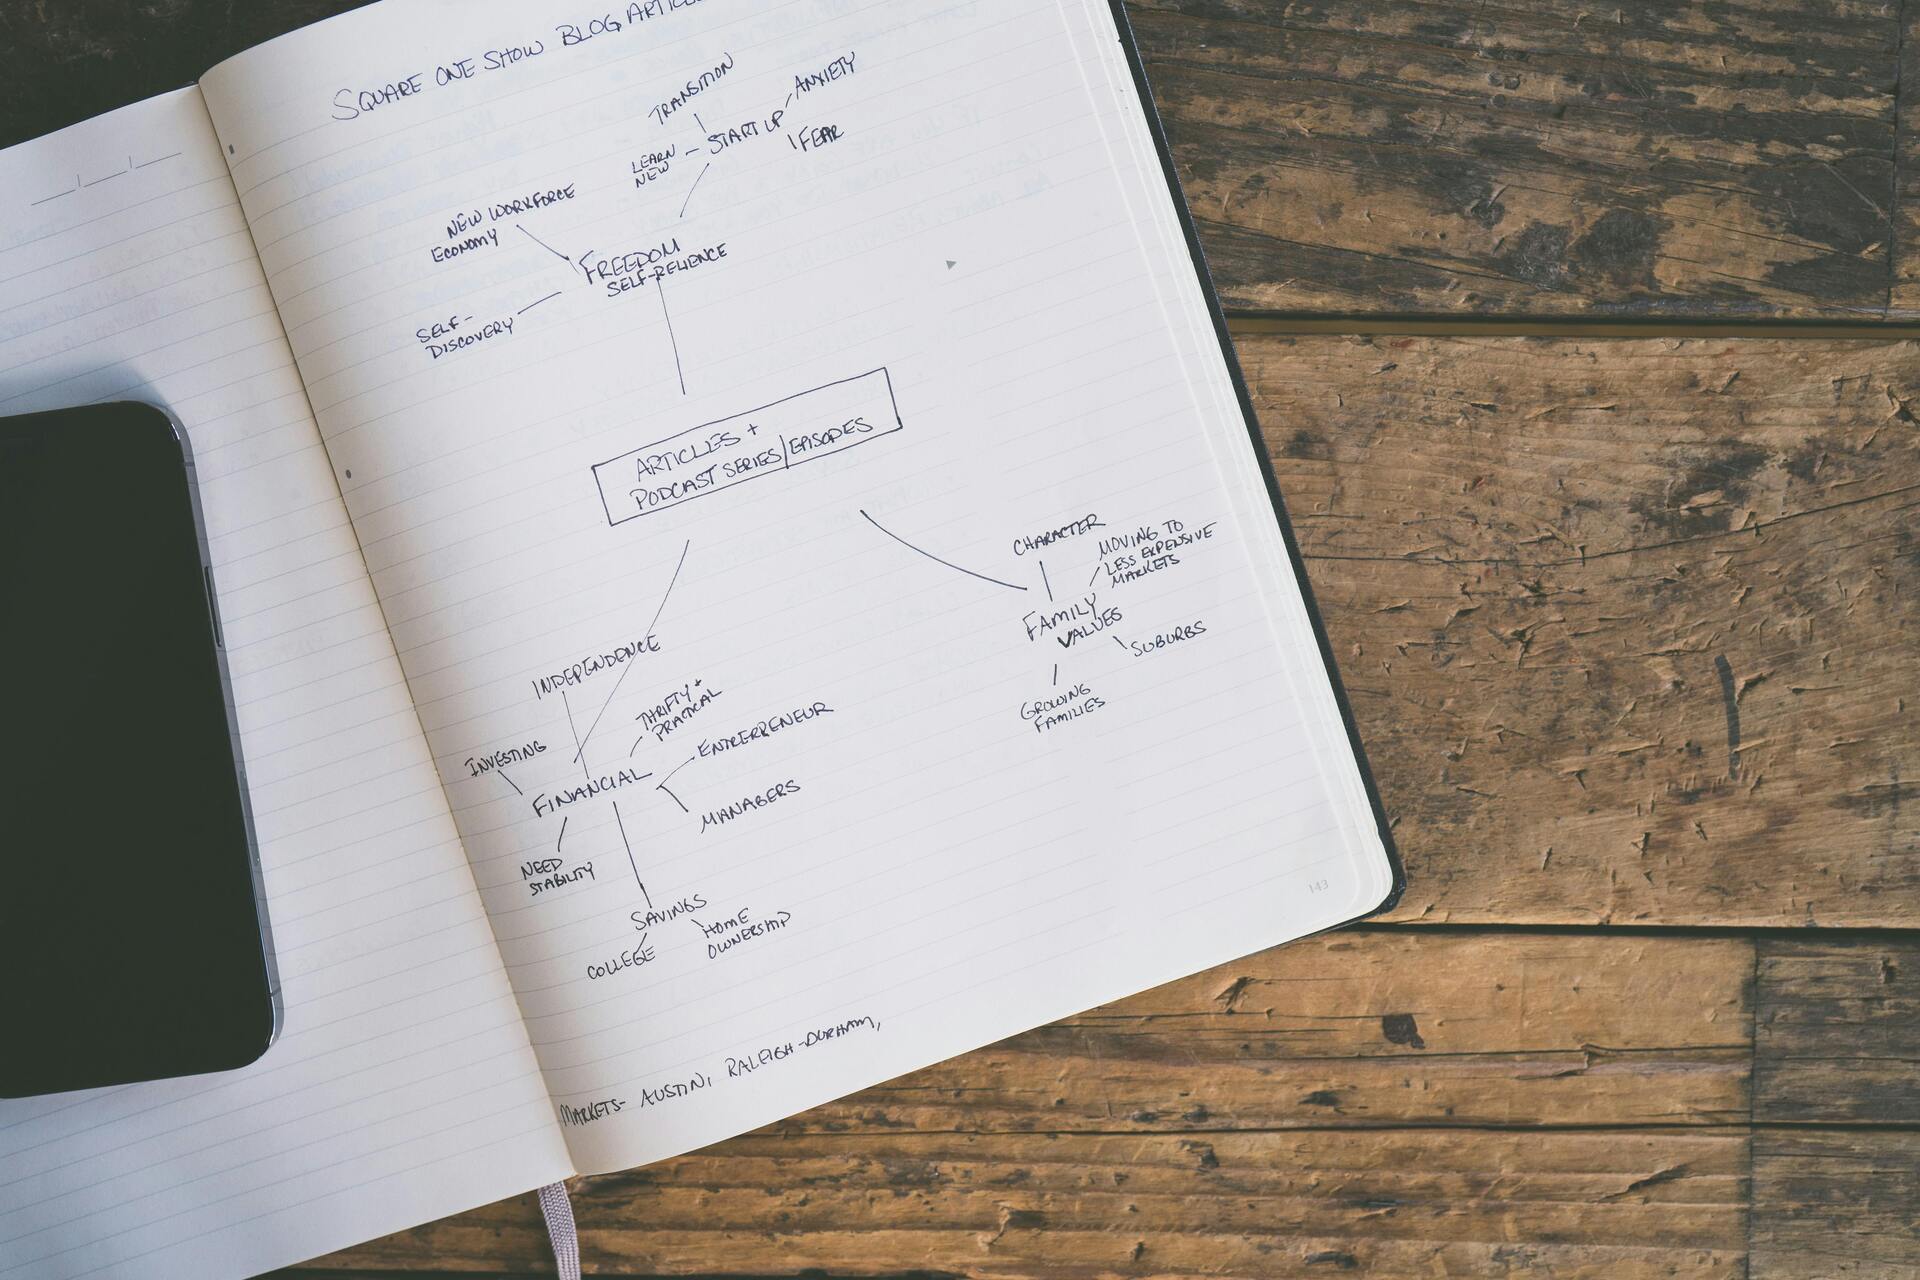 SQUARE ONE SHOW BLOG
TRANSITION
ANXIETY
START UP
FEAR
LEARN
NEW
NEW WORKFORCE
ECONOMY
FREEDOM
SELF-RELIENCE
SELF-
DISCOVERY
ARTICLES +
PODCAST SERIES/EPISODES
CHARACTER
MOVING TO
LESS EXPENSIVE
MARKETS
FAMILY
VALUES
SUBURBS
GROWING
FAMILIES
INDEPENDENCE
THRIFTY +
PRACTICAL
ENTREPRENEUR
INVESTING
FINANCIAL
MANAGERS
NEED
STABILITY
SAVINGS
HOME
OWNERSHIP
COLLEGE
143
MARKETS- AUSTIN, RALEIGH-DURHAM,